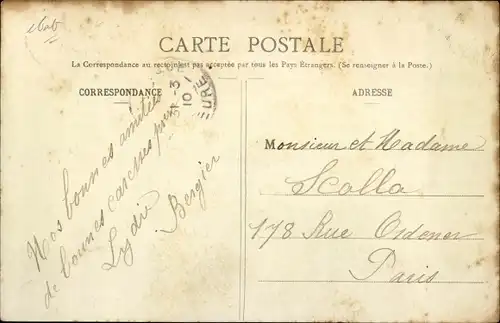 ebob
CARTE POSTALE
La Correspondance au recto n'est pas acceptée par tous les Pays Étrangers. (Se renseigner à la Poste.)
CORRESPONDANCE
ADRESSE
EURE
10
Nos bonnes amitiés
de bonnes caresses pour
Lydie
Bergier
Monsieur et Madame
Scalla
178 Rue Ordener
Paris